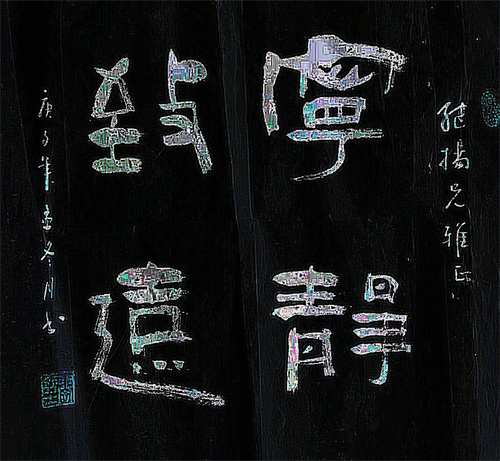 健楊兄雅正
寧靜
致遠
庚子年孟冬月書